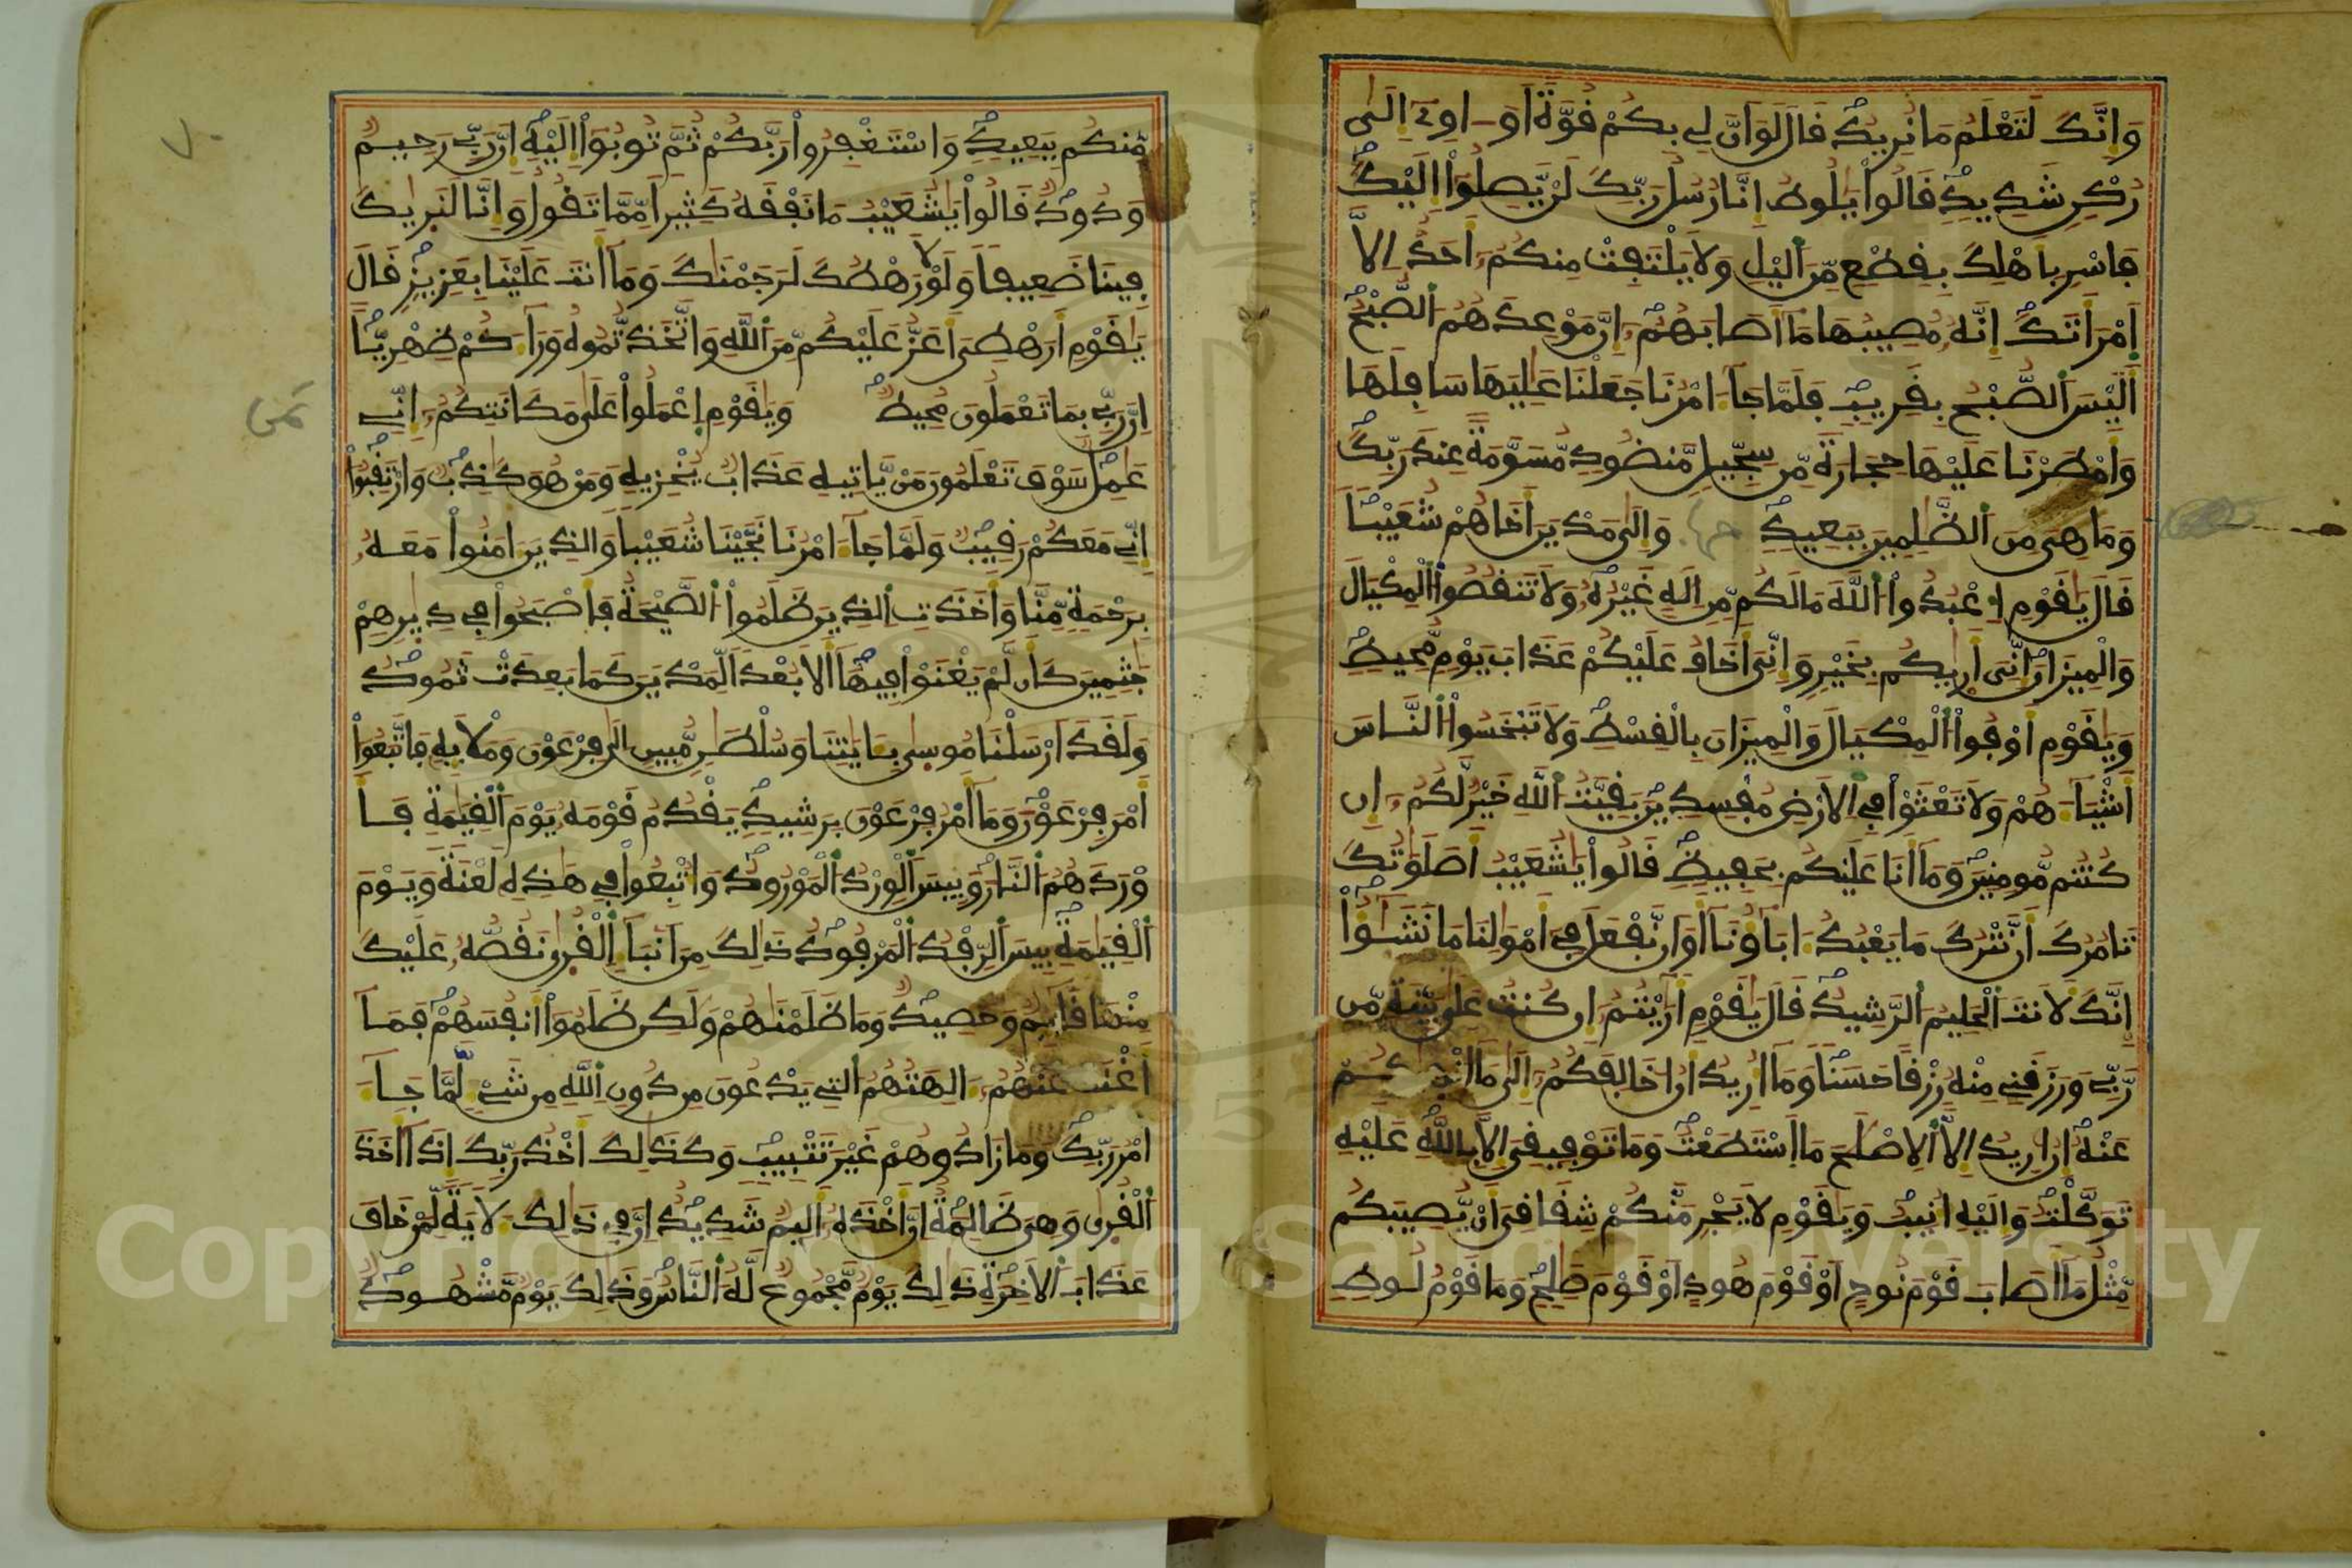 وَإِنَّكَ لَتَعْلَمُ مَا نُرِيدُ قَالَ لَوَ انَّ لِي بِكُمْ قُوَّةً اَوَ اوِے إِلَىٰ
رُكْنٍ شَدِيدٍ قَالُواْ يَٰلُوطُ إِنَّا رُسُلُ رَبِّكَ لَنْ يَّصِلُوٓاْ إِلَيْكَ
فَاسْرِ بِأَهْلِكَ بِقِطْعٍ مِّنَ اَلَيْلِ وَلَا يَلْتَفِتْ مِنكُمُۥٓ أَحَدٌ اِلَّا
اَمْرَأَتَكَ إِنَّهُۥ مُصِيبُهَا مَآ أَصَابَهُمُۥٓ إِنَّ مَوْعِدَهُمُ اُلصُّبْحُ
أَلَيْسَ اَلصُّبْحُ بِقَرِيبٍ فَلَمَّا جَآءَ امْرُنَا جَعَلْنَا عَٰلِيَهَا سَافِلَهَا
وَأَمْطَرْنَا عَلَيْهَا حِجَارَةً مِّن سِجِّيلٍ مَّنضُودٍ مُّسَوَّمَةً عِندَ رَبِّكَ
وَمَا هِيَ مِنَ اَلظَّٰلِمِينَ بِبَعِيدٍ وَإِلَىٰ مَدْيَنَ أَخَاهُمْ شُعَيْباً
قَالَ يَٰقَوْمِ اِ عْبُدُواْ اُللَّهَ مَا لَكُم مِّنِ اِلَٰهٍ غَيْرُهُۥ وَلَا تَنقُصُواْ اُلْمِكْيَالَ
وَالْمِيزَانَ إِنِّيَ أَرٰىٰكُم بِخَيْرٍ وَإِنِّيَ أَخَافُ عَلَيْكُمْ عَذَابَ يَوْمٍ مُّحِيطٍ
وَيَٰقَوْمِ أَوْفُواْ اُلْمِكْيَالَ وَالْمِيزَانَ بِالْقِسْطِ وَلَا تَبْخَسُواْ اُلنَّاسَ
أَشْيَآءَهُمْ وَلَا تَعْثَوْاْ فِي اِلَارْضِ مُفْسِدِينَ بَقِيَّتُ اُللَّهِ خَيْرٌ لَّكُمُۥٓ إِن
كُنتُم مُّومِنِينَ وَمَآ أَنَا عَلَيْكُم بِحَفِيظٍ قَالُواْ يَٰشُعَيْبُ أَصَلَوَٰتُكَ
تَامُرُكَ أَن نَّتْرُكَ مَا يَعْبُدُ ءَابَآؤُنَآ أَوَ ان نَّفْعَلَ فِيٓ أَمْوَٰلِنَا مَا نَشَٰٓؤُاْ
إِنَّكَ لَأَنتَ اَلْحَلِيمُ اُلرَّشِيدُ قَالَ يَٰقَوْمِ أَرَٰيْتُمُۥٓ إِن كُنتُ عَلَىٰ بَيِّنَةٍ مِّن
رَّبِّي وَرَزَقَنِي مِنْهُ رِزْقاً حَسَناً وَمَآ أُرِيدُ أَنُ اخَالِفَكُمُۥٓ إِلَىٰ مَآ أَنْهَىٰكُمْ
عَنْهُ إِنُ ارِيدُ إِلَّا اَلِاصْلَٰحَ مَا اَسْتَطَعْتُ وَمَا تَوْفِيقِيَ إِلَّا بِاللَّهِ عَلَيْهِ
تَوَكَّلْتُ وَإِلَيْهِ أُنِيبُ وَيَٰقَوْمِ لَا يَجْرِمَنَّكُمْ شِقَاقِيَ أَنْ يُّصِيبَكُم
مِّثْلُ مَآ أَصَابَ قَوْمَ نُوحٍ اَوْ قَوْمَ هُودٍ اَوْ قَوْمَ صَٰلِحٍ وَمَا قَوْمُ لُوطٍ
مِّنكُم بِبَعِيدٍ وَاسْتَغْفِرُواْ رَبَّكُمْ ثُمَّ تُوبُوٓاْ إِلَيْهِ إِنَّ رَبِّي رَحِيمٌ
وَدُودٌ قَالُواْ يَٰشُعَيْبُ مَا نَفْقَهُ كَثِيراً مِّمَّا تَقُولُ وَإِنَّا لَنَرٰىٰكَ
فِينَا ضَعِيفاً وَلَوْلَا رَهْطُكَ لَرَجَمْنَٰكَ وَمَآ أَنتَ عَلَيْنَا بِعَزِيزٍ قَالَ
يَٰقَوْمِ أَرَهْطِيَ أَعَزُّ عَلَيْكُم مِّنَ اَللَّهِ وَاتَّخَذتُّمُوهُ وَرَآءَكُمْ ظِهْرِيّاً
إِنَّ رَبِّي بِمَا تَعْمَلُونَ مُحِيطٌ وَيَٰقَوْمِ اِعْمَلُواْ عَلَىٰ مَكَانَتِكُمُۥٓ إِنِّي
عَٰمِلٌ سَوْفَ تَعْلَمُونَ مَنْ يَّاتِيهِ عَذَابٌ يُخْزِيهِ وَمَنْ هُوَ كَٰذِبٌ وَارْتَقِبُوٓاْ
إِنِّي مَعَكُمْ رَقِيبٌ وَلَمَّا جَآءَ امْرُنَا نَجَّيْنَا شُعَيْباً وَالذِينَ ءَامَنُواْ مَعَهُۥ
بِرَحْمَةٍ مِّنَّا وَأَخَذَتِ اِلذِينَ ظَلَمُواْ اُلصَّيْحَةُ فَأَصْبَحُواْ فِي دِيٰرِهِمْ
جَٰثِمِينَ كَأَن لَّمْ يَغْنَوْاْ فِيهَآ أَلَا بُعْداً لِّمَدْيَنَ كَمَا بَعِدَتْ ثَمُودُ
وَلَقَدَ ارْسَلْنَا مُوسَىٰ بِـَٔايَٰتِنَا وَسُلْطَٰنٍ مُّبِينٍ اِلَىٰ فِرْعَوْنَ وَمَلَإِيْهِ فَاتَّبَعُوٓاْ
أَمْرَ فِرْعَوْنَ وَمَآ أَمْرُ فِرْعَوْنَ بِرَشِيدٍ يَقْدُمُ قَوْمَهُۥ يَوْمَ اَلْقِيَٰمَةِ فَأَ
وْرَدَهُمُ اُلنَّارَ وَبِيسَ اَلْوِرْدُ اُلْمَوْرُودُ وَأُتْبِعُواْ فِي هَٰذِهِ لَعْنَةً وَيَوْمَ
اَلْقِيَٰمَةِ بِيسَ اَلرِّفْدُ اُلْمَرْفُودُ ذَٰلِكَ مِنَ اَنۢبَآءِ اِلْقُرٰىٰ نَقُصُّهُۥ عَلَيْكَ
مِنْهَا قَآئِمٌ وَحَصِيدٌ وَمَا ظَلَمْنَٰهُمْ وَلَٰكِن ظَلَمُوٓاْ أَنفُسَهُمْ فَمَآ
أَغْنَتْ عَنْهُمُۥٓ ءَالِهَتُهُمُ اُلتِي يَدْعُونَ مِن دُونِ اِللَّهِ مِن شَيْءٍ لَّمَّا جَآءَ
امْرُ رَبِّكَ وَمَا زَادُوهُمْ غَيْرَ تَتْبِيبٍ وَكَذَٰلِكَ أَخْذُ رَبِّكَ إِذَآ أَخَذَ
اَلْقُرٰىٰ وَهِيَ ظَٰلِمَةٌ اِنَّ أَخْذَهُۥٓ أَلِيمٌ شَدِيدٌ اِنَّ فِي ذَٰلِكَ لَأٓيَةً لِّمَنْ خَافَ
عَذَابَ اَلَاخِرَةِ ذَٰلِكَ يَوْمٌ مَّجْمُوعٌ لَّهُ اُلنَّاسُ وَذَٰلِكَ يَوْمٌ مَّشْهُودٌ
ثمن
٧٠
Copyright © King Saud University